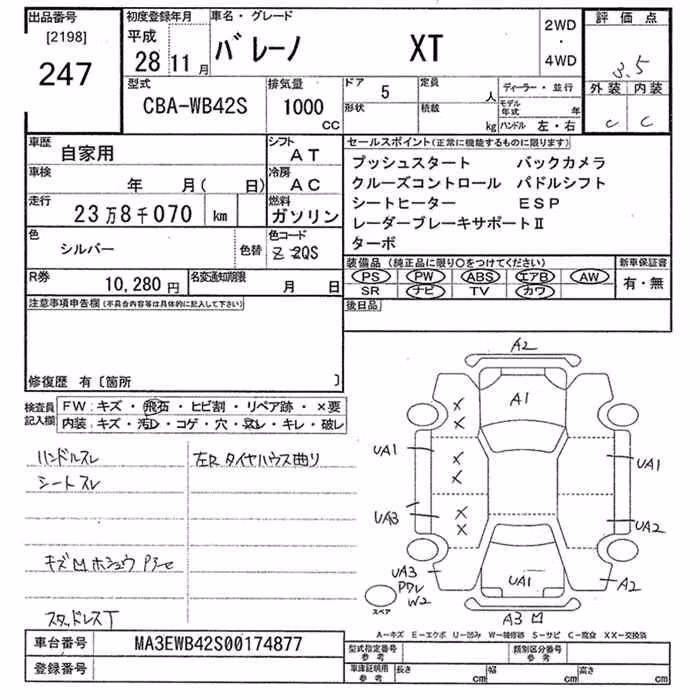 出品番号 初度登録年月 車名・グレード 2WD・4WD 評価点
[2198] 平成
247 28 11月 バレーノ XT 3.5
型式 排気量 ドア 5 定員 人 ディーラー・並行 外装 内装
CBA-WB42S 1000 CC 形状 積載 kg モデル年式 年 C C
ハンドル 左・右
車歴 自家用 シフト AT セールスポイント(正常に機能するものに限ります)
車検 年 月( 日) 冷房 AC プッシュスタート バックカメラ
クルーズコントロール パドルシフト
走行 23万8千070 km 燃料 ガソリン シートヒーター ESP
レーダーブレーキサポートⅡ
色 シルバー 色替 色コード ZQS ターボ
装備品(純正品に限り○をつけてください) 新車保証書
R券 10,280円 名変通知期限 月 日 PS PW ABS エアB AW 有・無
SR ナビ TV カワ
注意事項申告欄(不具合内容等は具体的に記入して下さい) 後日品
修復歴 有〔箇所 〕
検査員記入欄 FW:キズ・飛石・ヒビ割・リペア跡・×要
内装:キズ・汚レ・コゲ・穴・スレ・キレ・破レ
ハンドルスレ 左R タイヤハウス曲り
シートスレ
スタッドレスT
A2
A1
UA1 UA1
UA3 UA2
UA3 UA1 A2
W2
スペア A3
A-キズ E-エクボ U-凹み W-補修跡 S-サビ C-腐食 XX-交換済
車台番号 MA3EWB42S00174877 型式指定番号 参考 類別区分番号 参考
登録番号 車庫証明用 参考 長さ cm 幅 cm 高さ cm